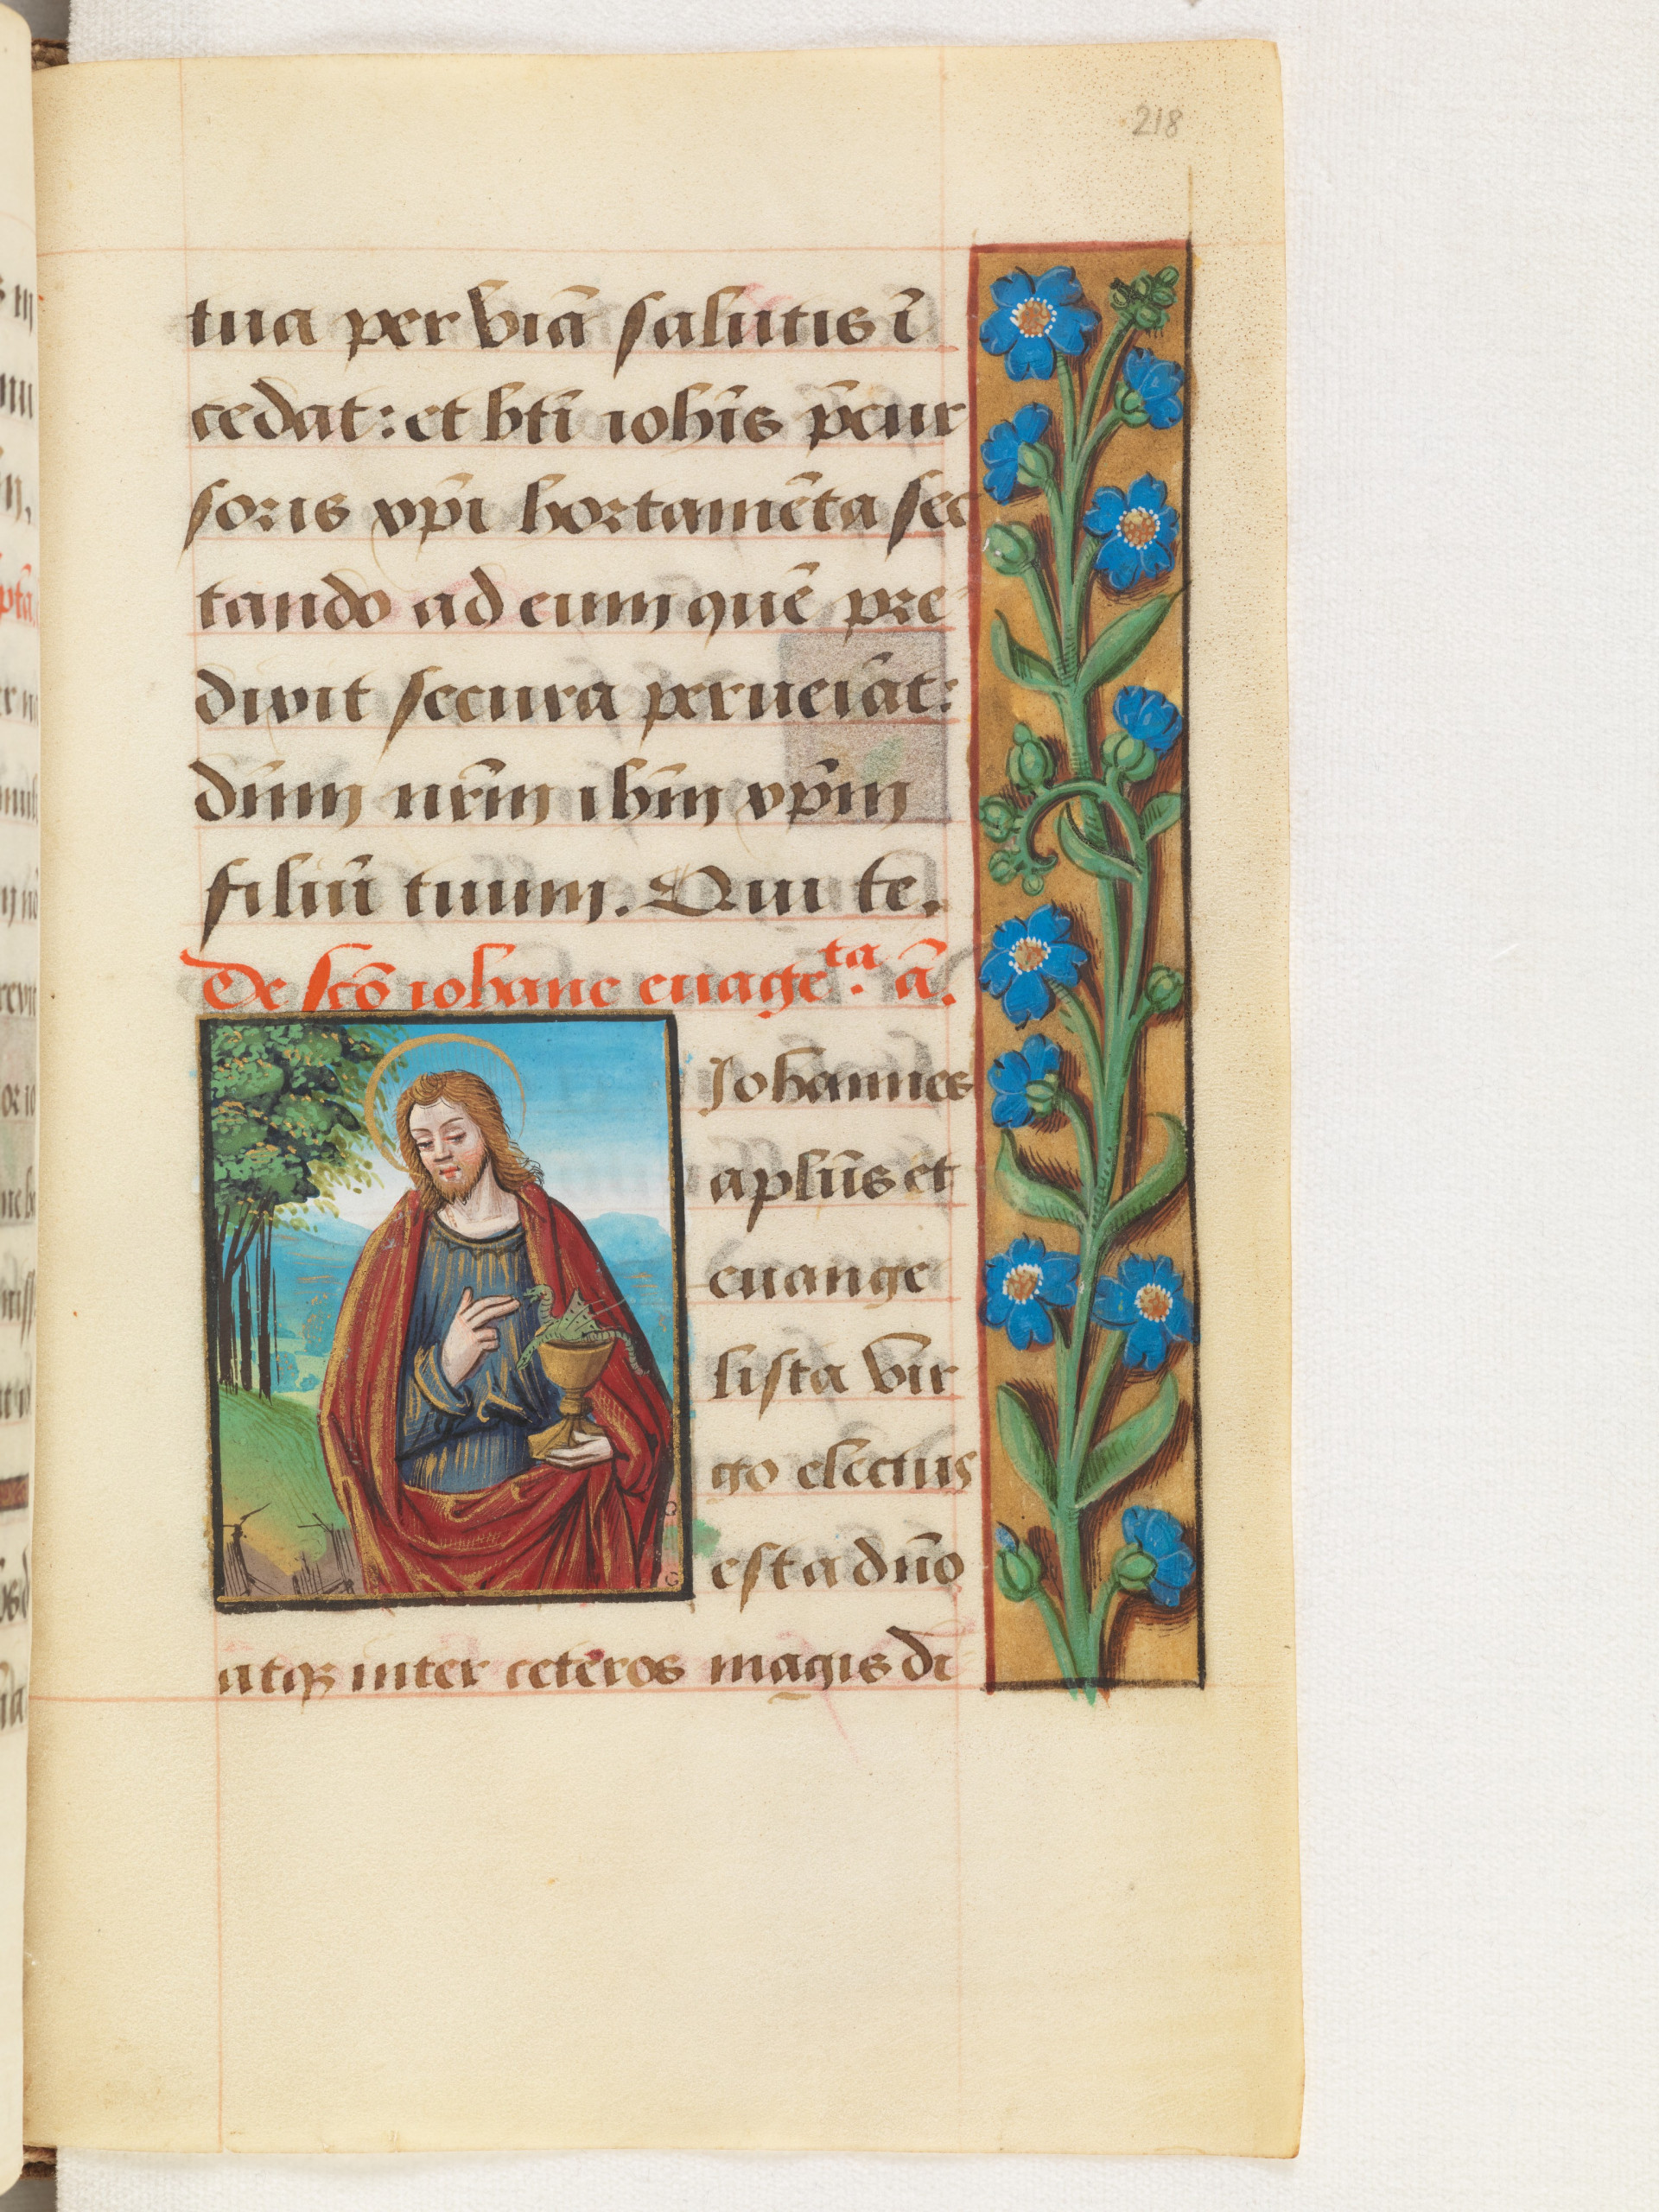 218
tua per viā salutis ī
cedat: et bti̅ iohi̅s p̅cur
soris xp̅i hortamēta sec
tando ad eum quē pre
dixit secura perueiāt:
dn̅m nr̅m ihm̅ xp̅m
filiū tuum. Qui te.
De sc̅o iohane euāge.ᵗᵃ ā.
Johannes
aplūs et
euange
lista vir
go electus
est a dn̅o
atqꝫ inter ceteros magis di